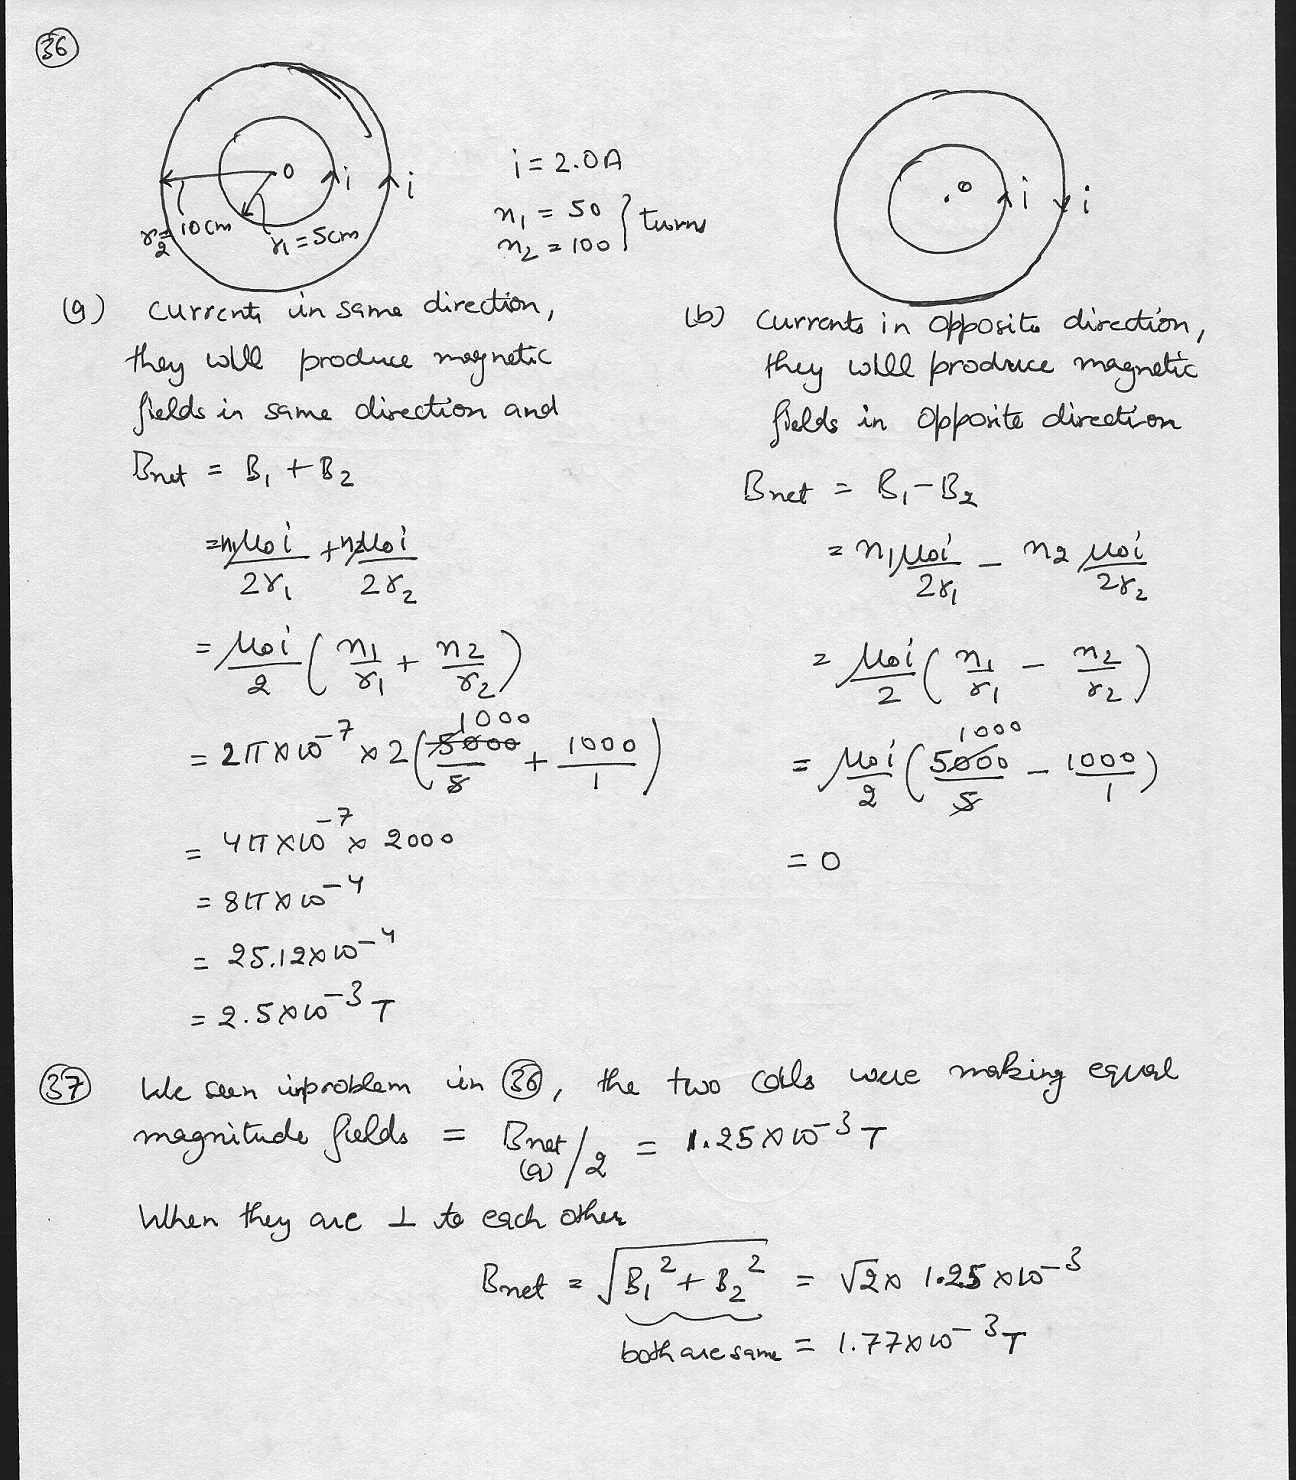 36
O
i
i
r2 = 10cm
r1 = 5cm
i = 2.0A
n1 = 50
n2 = 100 } turns
O
i
i
(a) currents in same direction,
they will produce magnetic
fields in same direction and
Bnet = B1 + B2
= n1μ0i/2r1 + n2μ0i/2r2
= μ0i/2 (n1/r1 + n2/r2)
= 2π×10^-7 × 2 (5000/5 1000 + 1000/1)
= 4π×10^-7 × 2000
= 8π×10^-4
= 25.12×10^-4
= 2.5×10^-3 T
(b) currents in opposite direction,
they will produce magnetic
fields in opposite direction
Bnet = B1 - B2
= n1 μ0i/2r1 - n2 μ0i/2r2
= μ0i/2 (n1/r1 - n2/r2)
= μ0i/2 (5000/5 1000 - 1000/1)
= 0
37 We seen inproblem in 36, the two coils were making equal
magnitude fields = Bnet(a)/2 = 1.25×10^-3 T
When they are ⊥ to each other
Bnet = √(B1^2 + B2^2) = √2 × 1.25×10^-3
both are same = 1.77×10^-3 T